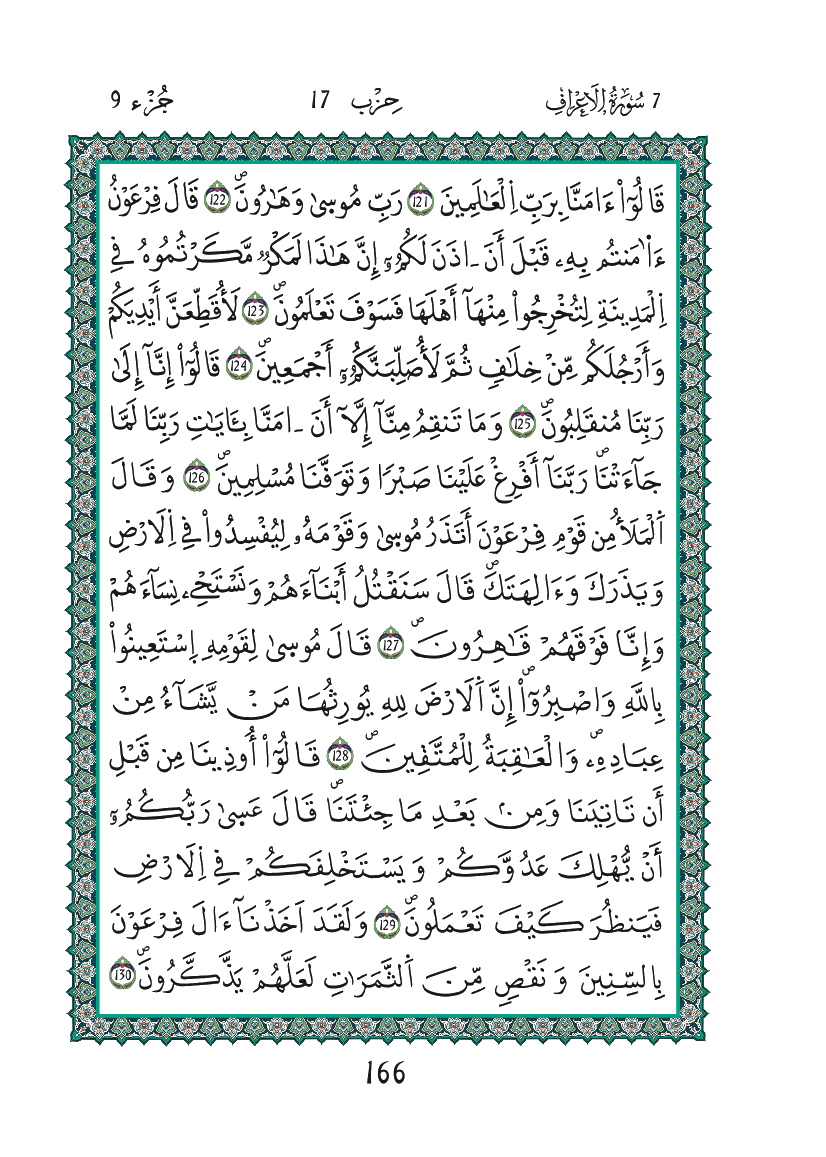 7 سُورَةُ الَاعْرَافِ حِزْب 17 جُزْء 9
قَالُوٓاْ ءَامَنَّا بِرَبِّ اِ۬لْعَٰلَمِينَ 121 رَبِّ مُوسۭيٰ وَهَٰرُونَۖ 122 قَالَ فِرْعَوْنُ
ءَاٰ۬مَنتُم بِهِۦ قَبْلَ أَنَ ـ اذَنَ لَكُمُۥٓ إِنَّ هَٰذَا لَمَكْرٞ مَّكَرْتُمُوهُ فِے
اِ۬لْمَدِينَةِ لِتُخْرِجُواْ مِنْهَآ أَهْلَهَا فَسَوْفَ تَعْلَمُونَۖ 123 لَأُقَطِّعَنَّ أَيْدِيَكُمْ
وَأَرْجُلَكُم مِّنْ خِلَٰفٖ ثُمَّ لَأُصَلِّبَنَّكُمُۥٓ أَجْمَعِينَۖ 124 قَالُوٓاْ إِنَّآ إِلَىٰ
رَبِّنَا مُنقَلِبُونَۖ 125 وَمَا تَنقِمُ مِنَّآ إِلَّآ أَنَ ـ امَنَّا بِـَٔايَٰتِ رَبِّنَا لَمَّا
جَآءَتْنَاۖ رَبَّنَآ أَفْرِغْ عَلَيْنَا صَبْرٗا وَتَوَفَّنَا مُسْلِمِينَۖ 126 وَقَالَ
اَ۬لْمَلَأُ مِن قَوْمِ فِرْعَوْنَ أَتَذَرُ مُوسۭيٰ وَقَوْمَهُۥ لِيُفْسِدُواْ فِے اِ۬لَارْضِ
وَيَذَرَكَ وَءَالِهَتَكَۖ قَالَ سَنَقْتُلُ أَبْنَآءَهُمْ وَنَسْتَحْيِۦ نِسَآءَهُمْ
وَإِنَّا فَوْقَهُمْ قَٰهِرُونَۖ 127 قَالَ مُوسۭيٰ لِقَوْمِهِ اِ۪سْتَعِينُواْ
بِاللَّهِ وَاصْبِرُوٓاْۖ إِنَّ اَ۬لَارْضَ لِلهِ يُورِثُهَا مَنْ يَّشَآءُ مِنْ
عِبَادِهِۦۖ وَالْعَٰقِبَةُ لِلْمُتَّقِينَۖ 128 قَالُوٓاْ أُوذِينَا مِن قَبْلِ
أَن تَاتِيَنَا وَمِنۢ بَعْدِ مَا جِئْتَنَاۖ قَالَ عَسۭيٰ رَبُّكُمُۥٓ
أَنْ يُّهْلِكَ عَدُوَّكُمْ وَيَسْتَخْلِفَكُمْ فِے اِ۬لَارْضِ
فَيَنظُرَ كَيْفَ تَعْمَلُونَۖ 129 وَلَقَدَ اَخَذْنَآ ءَالَ فِرْعَوْنَ
بِالسِّنِينَ وَنَقْصٖ مِّنَ اَ۬لثَّمَرَٰتِ لَعَلَّهُمْ يَذَّكَّرُونَۖ 130
166